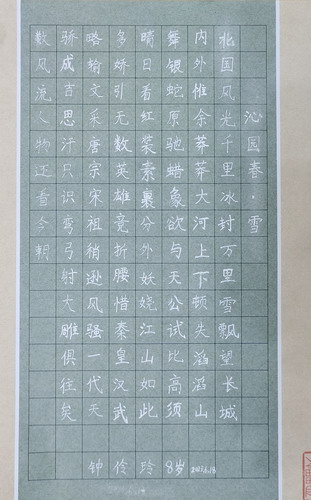 沁园春·雪
北国风光千里冰封万里雪飘望长城
内外惟余莽莽大河上下顿失滔滔山
舞银蛇原驰蜡象欲与天公试比高须
晴日看红装素裹分外妖娆江山如此
多娇引无数英雄竞折腰惜秦皇汉武
略输文采唐宗宋祖稍逊风骚一代天
骄成吉思汗只识弯弓射大雕俱往矣
数风流人物还看今朝
钟伶玲 8岁 2021.6.13